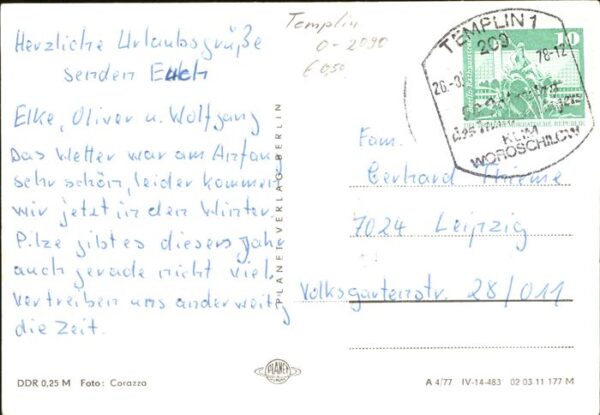 Templin
0-2090
€ 0,50
Herzliche Urlaubsgrüße
senden Euch
Elke, Oliver u. Wolfgang
Das Wetter war am Anfang
sehr schön, leider kommen
wir jetzt in den Winter.
Pilze gibt es dieses Jahr
auch gerade nicht viel.
Vertreiben uns anderweitig
die Zeit.
PLANET-VERLAG BERLIN
TEMPLIN 1
209
26.-9.
78-12
KLIM
WOROSCHILOW
10
DEMOKRATISCHE REPUBLIK
Fam.
Gerhard Thieme
7024 Leipzig
Volksgartenstr. 28/011
DDR 0,25 M Foto: Corazza
PLANET
A 4/77 IV-14-483 02 03 11 177 M